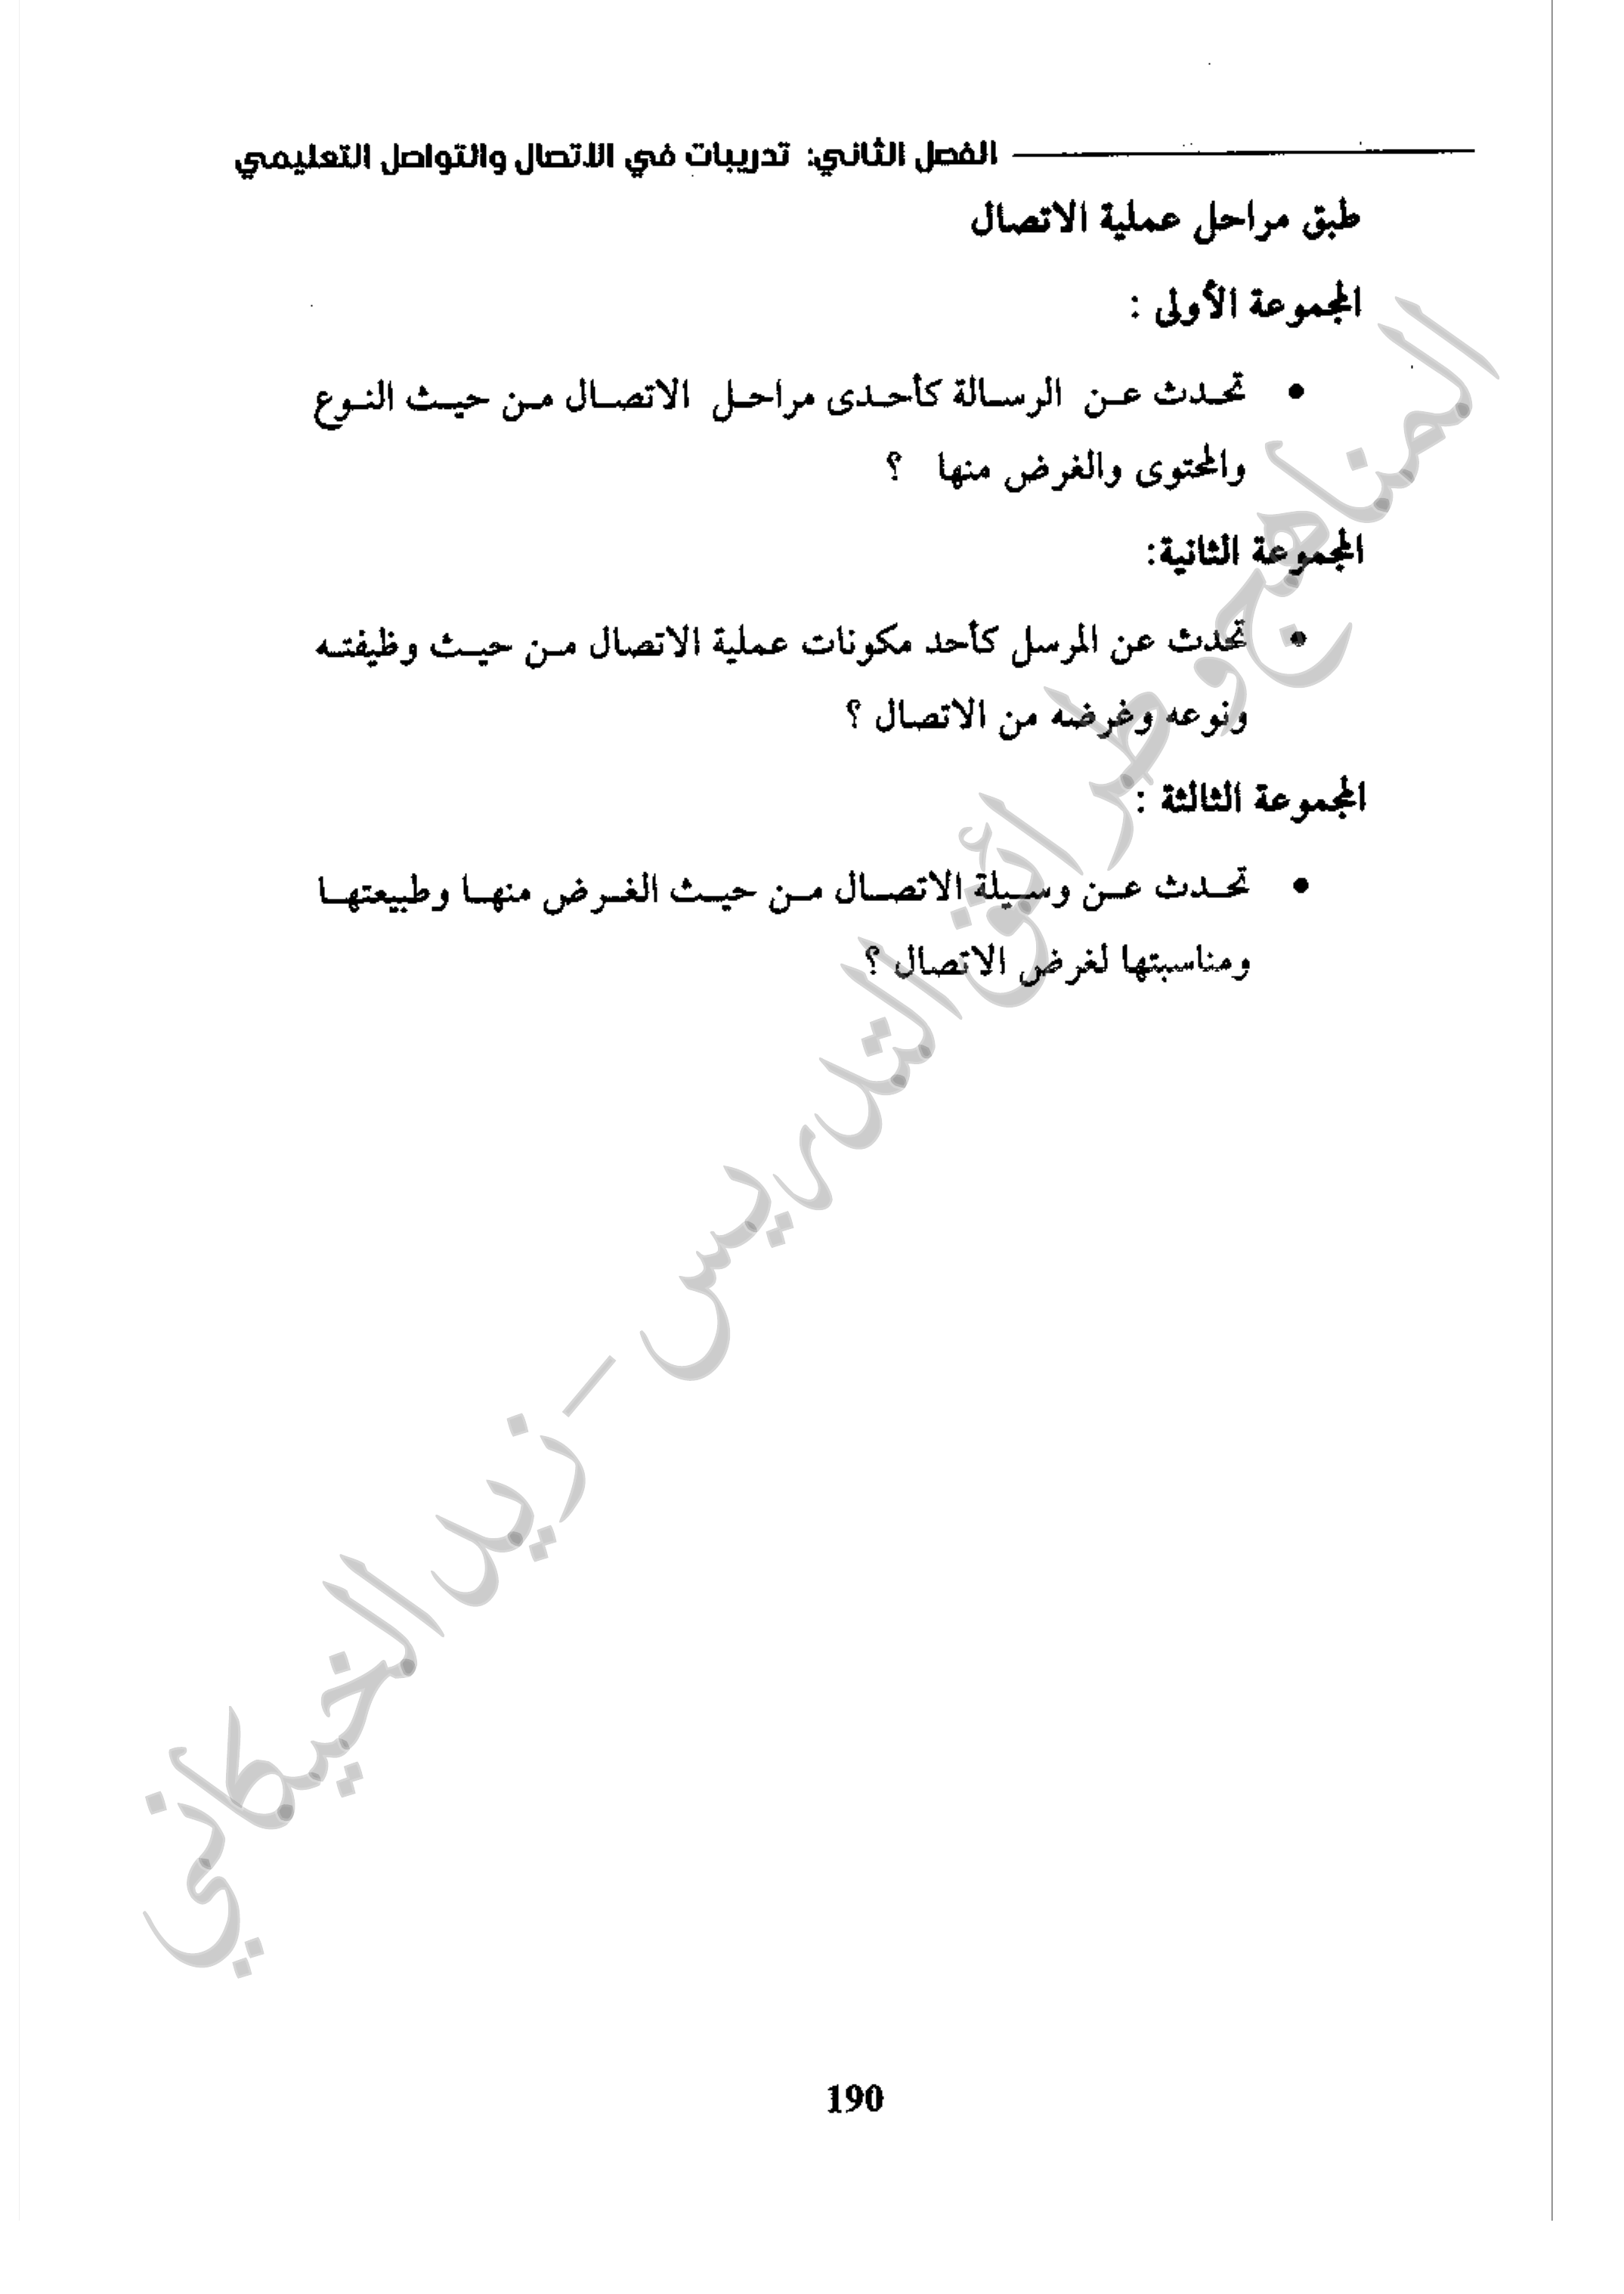 الفصل الثاني: تدريبات في الاتصال والتواصل التعليمي
طبق مراحل عملية الاتصال
المجموعة الأولى :
• تحدث عن الرسالة كأحدى مراحل الاتصال من حيث النوع
والمحتوى والغرض منها ؟
المجموعة الثانية:
• تحدث عن المرسل كأحد مكونات عملية الاتصال من حيث وظيفته
ونوعه وغرضه من الاتصال ؟
المجموعة الثالثة :
• تحدث عن وسيلة الاتصال من حيث الغرض منها وطبيعتها
ومناسبتها لغرض الاتصال ؟
المناهج وطرائق التدريس - زيد الخيكاني
190